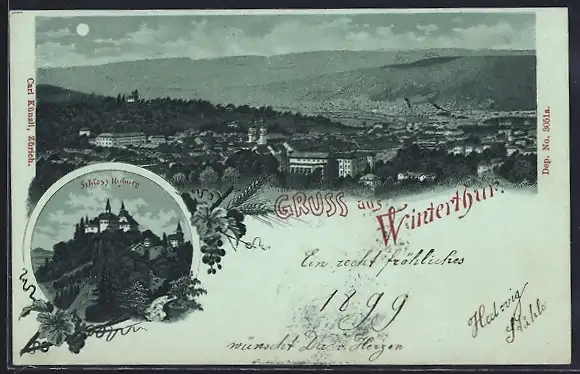 Carl Künzli, Zürich.
Dep. No. 3051a.
Schloss Kyburg
GRUSS aus Winterthur.
Ein recht fröhliches
1899
wünscht Dir v. Herzen
Hedwig